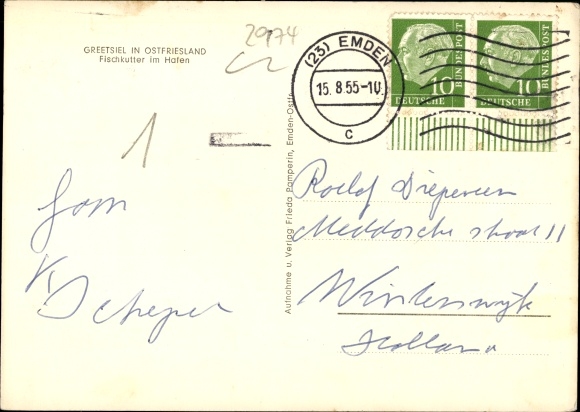 GREETSIEL IN OSTFRIESLAND
Fischkutter im Hafen
2974
1
(23) EMDEN
15.8.55-10
c
10
DEUTSCHE
BUNDESPOST
10
DEUTSCHE
BUNDESPOST
Aufnahme u. Verlag Frieda Pamperin, Emden-Ostfr.
Fam
Scheper
Roelof Dieperveen
Meddosche straat 11
Winterswijk
Holland